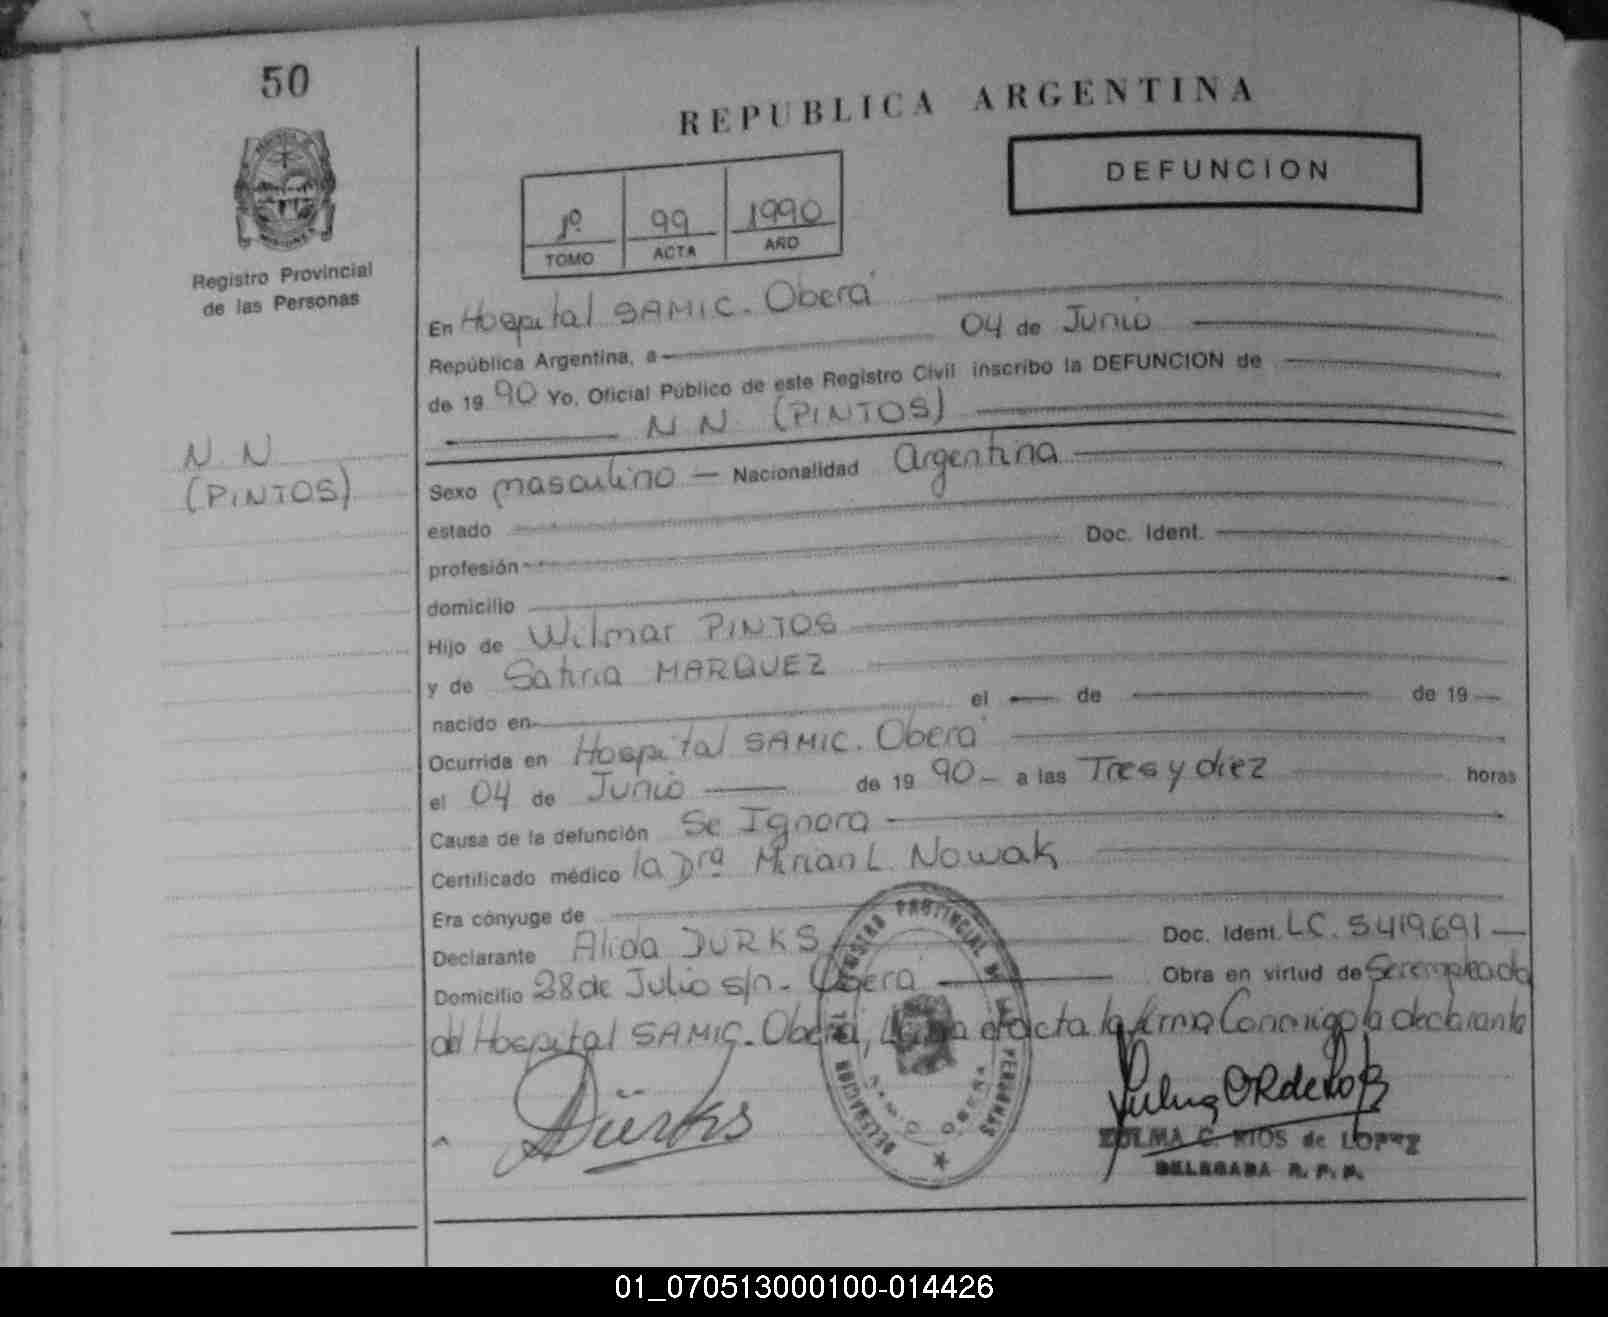 50
REPUBLICA ARGENTINA
DEFUNCION
1º 99 1990
TOMO ACTA AÑO
Registro Provincial
de las Personas
En Hospital SAMIC. Oberá
República Argentina, a 04 de Junio
de 19 90 Yo, Oficial Público de este Registro Civil inscribo la DEFUNCION de
N N. (PINTOS)
N. N
(PINTOS)
Sexo masculino — Nacionalidad Argentina
estado
profesión Doc. Ident.
domicilio
Hijo de Wilmar PINTOS
y de Satiria MARQUEZ
nacido en el — de — de 19 —
Ocurrida en Hospital SAMIC. Oberá
el 04 de Junio — de 19 90 — a las Tres y diez horas
Causa de la defunción Se Ignora
Certificado médico la Drª Mirian L. Nowak
Era cónyuge de
Declarante Alida DURKS Doc. Ident. LC. 5.419.691 —
Domicilio 28 de Julio s/n - Oberá — Obra en virtud de Ser empleada
del Hospital SAMIC. Oberá, Leída el acta la firma Conmigo la declarante
REGISTRO PROVINCIAL DE LAS PERSONAS
DELEGACION
Dürks
ZULMA C. RIOS de LOPEZ
DELEGADA R. P. P.
01_070513000100-014426